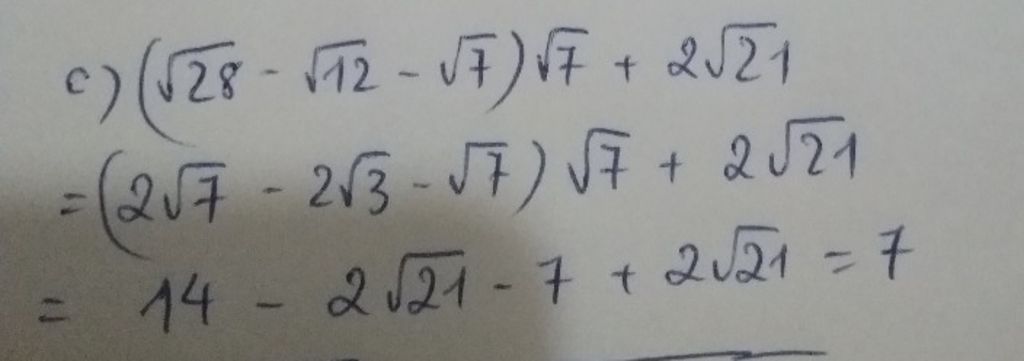 c) (√28 - √12 - √7)√7 + 2√21
= (2√7 - 2√3 - √7) √7 + 2√21
= 14 - 2√21 - 7 + 2√21 = 7